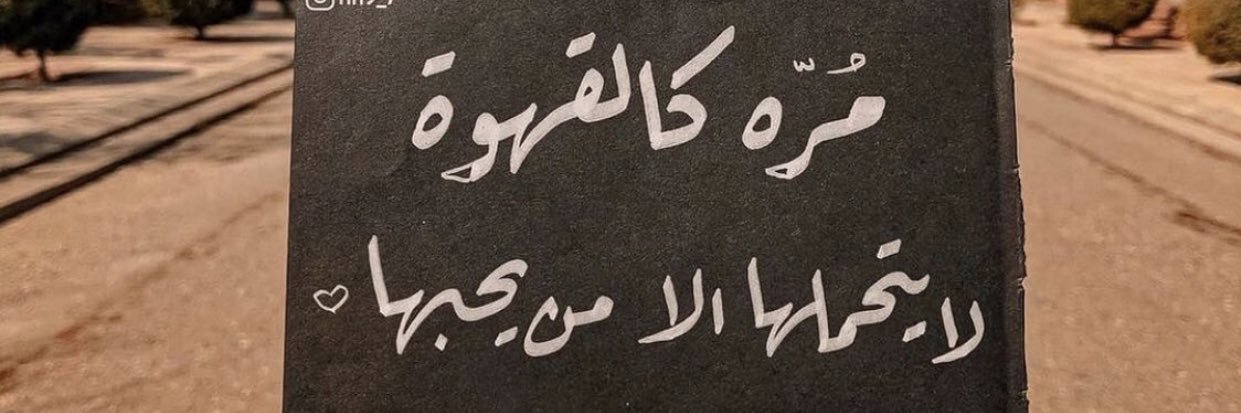 مُرّه كالقهوة
لا يتحملها الا من يحبها